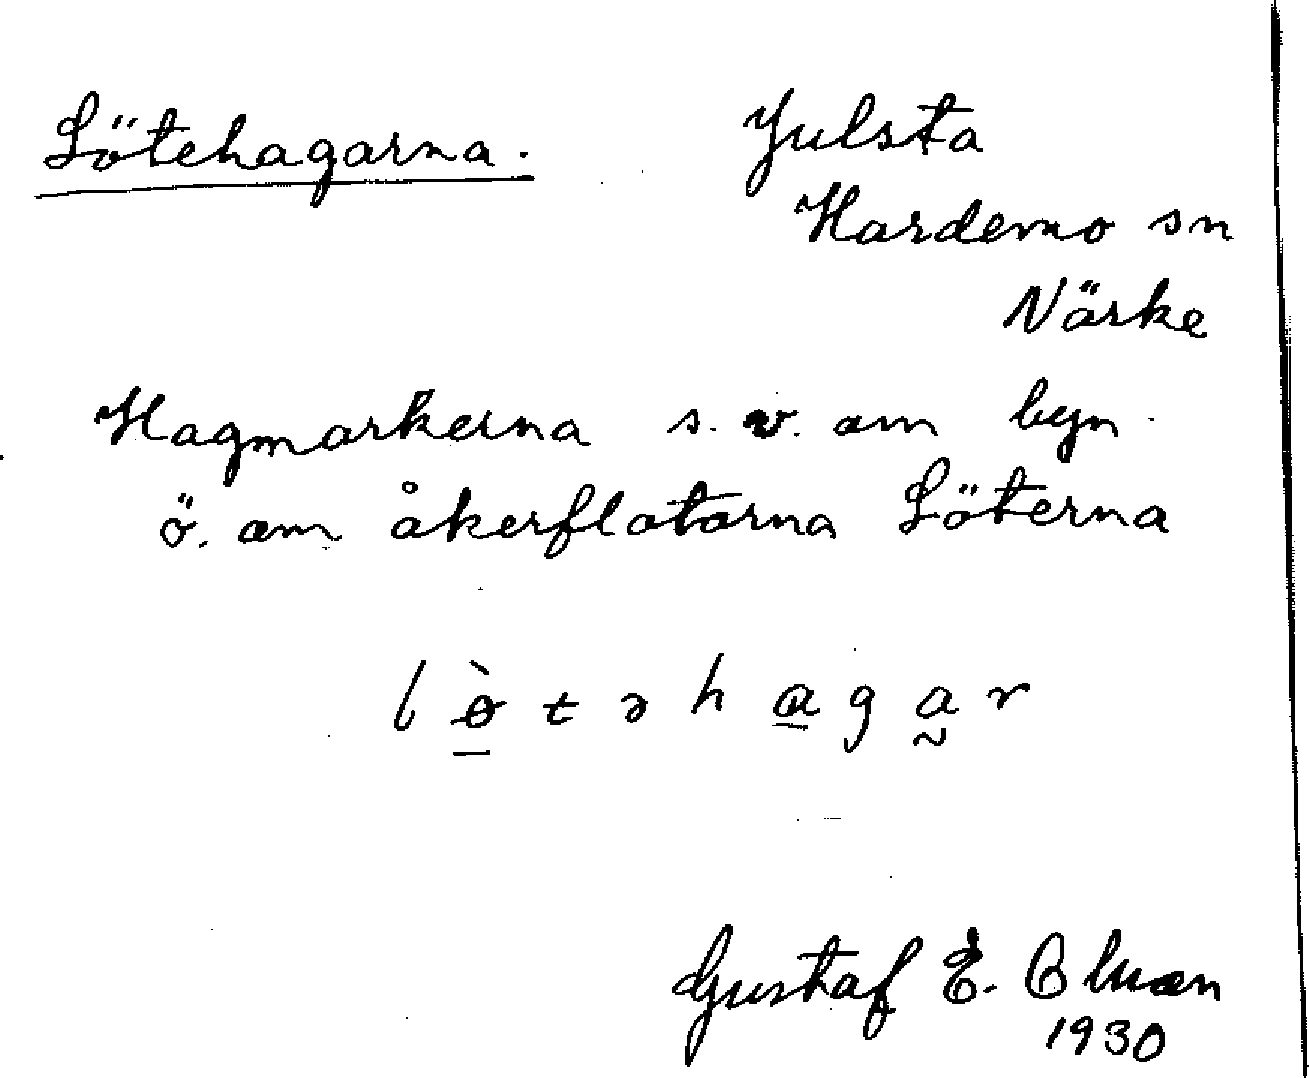 Lötehagarna.
Julsta
Hardemo sn
Närke
Hagmarkerna s.v. om byn
ö. om åkerflatarna Löterna
lø̀təhagar
Gustaf E.
1930